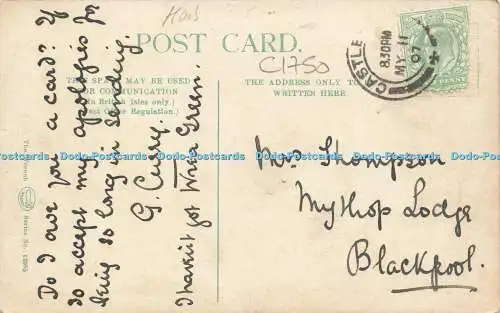 Hans
POST CARD.
C1750
THIS SPACE MAY BE USED
FOR COMMUNICATION
(In British Isles only.)
(Post Office Regulation.)
THE ADDRESS ONLY TO
WRITTEN HERE.
CASTLE
8.30PM
MY 11
07
Do I owe you a card? If
so accept my apologies for
being so long in sending.
G. Curry.
I haven't got Wera Green.
Mrs Thompson
Mythop Lodge
Blackpool.
Dodo-Postcards Dodo-Postcards Dodo-Postcards Dodo-Postcards Dodo-Postcards